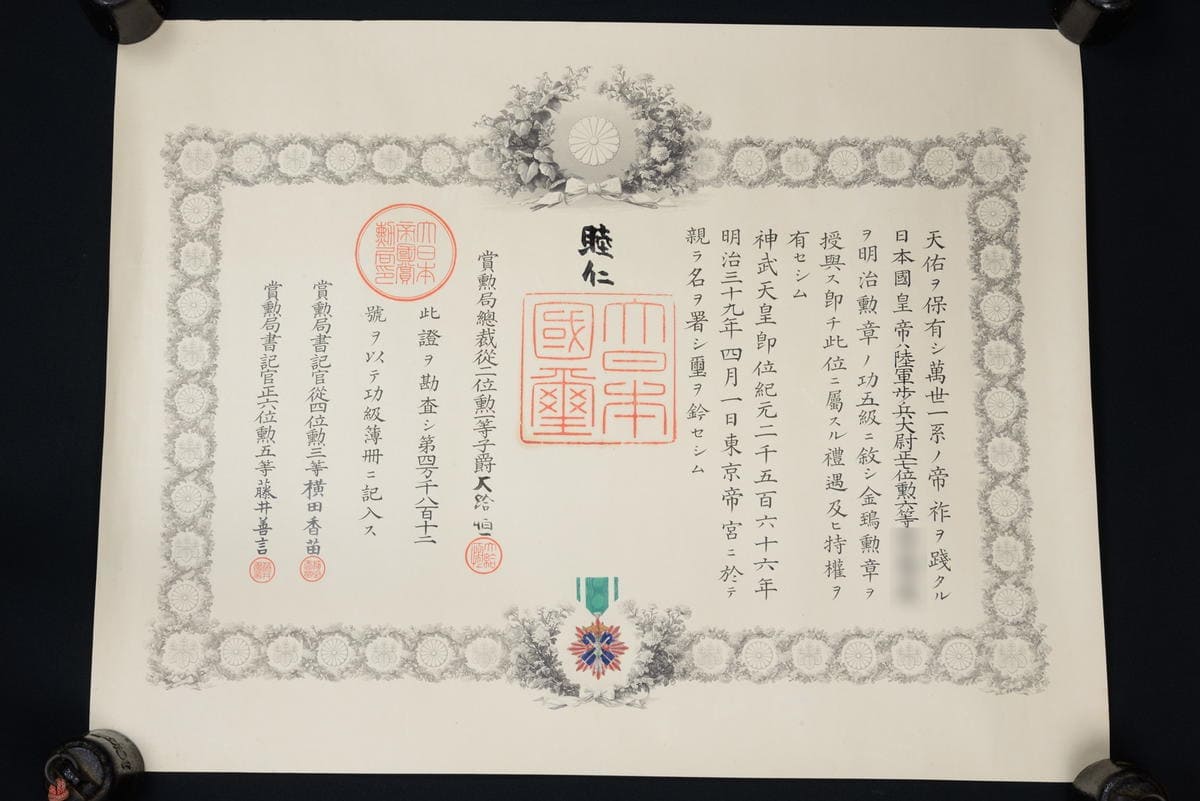 天佑ヲ保有シ萬世一系ノ帝祚ヲ踐タル
日本國皇帝ハ陸軍歩兵大尉正七位勲六等
ヲ明治勲章ノ功五級ニ敘シ金鵄勲章ヲ
授與ス即チ此位ニ屬スル禮遇及ヒ特權ヲ
有セシム
神武天皇即位紀元二千五百六十六年
明治三十九年四月一日東京帝宮ニ於テ
親ラ名ヲ署シ璽ヲ鈐セシム
睦仁
大日本國璽
賞勲局總裁從二位勲一等子爵大給恒
此證ヲ勘査シ第四万千八百十二
號ヲ以テ功級簿冊ニ記入ス
大日本帝國賞勲局印
賞勲局書記官從四位勲三等横田香苗
賞勲局書記官正六位勲五等藤井善言